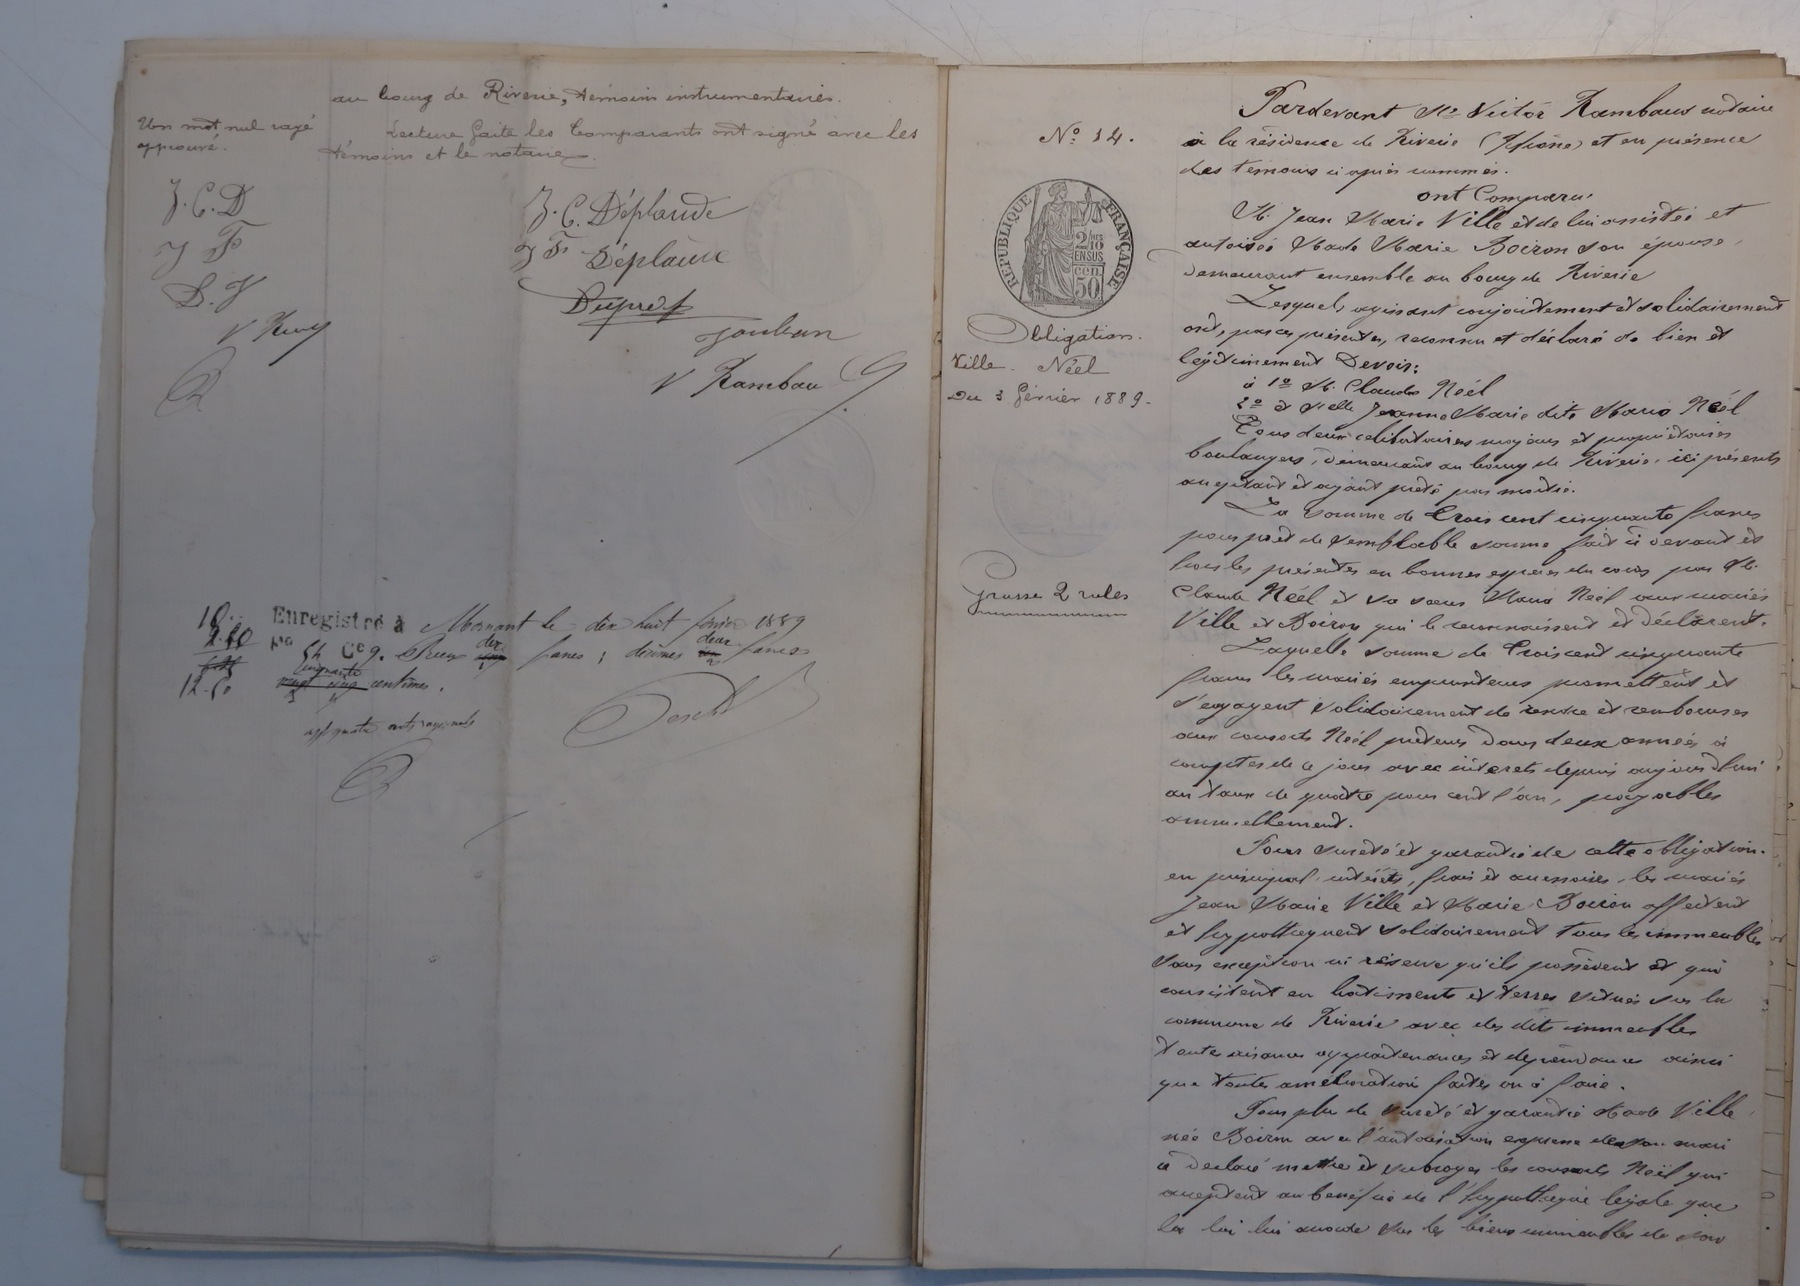 au bourg de Riverie, témoins instrumentaires.
Un mot nul rayé
approuvé.
Lecture faite les Comparants ont signé avec les
témoins et le notaire.
J. C. D
J F
D. J
J. C. Déplaude
J F Déplaude
V Rambau
10
2.50
12.50
Enregistré à Mornant le dix huit février 1889
francs ; décimes deux francs
cinquante centimes.
Nº 14.
RÉPUBLIQUE FRANÇAISE
2/10
EN SUS
50 cen
Obligation.
Ville - Néel
Du 3 février 1889.
Grosse 2 roles
Pardevant Me Victor Rambaud notaire
à la résidence de Riverie (Rhône) et en présence
des témoins ci après nommés.
ont Comparu
M. Jean Marie Ville et de lui assistée et
autorisée Made Marie Boiron son épouse,
demeurant ensemble au bourg de Riverie
Lesquels, agissant conjointement et solidairement
ont, par ces présentes, reconnu et déclaré de bien et
légitimement Devoir:
à 1º M. Claude Néel
2º et Melle Jeanne Marie dite Maria Néel
Tous deux celibataires majeurs et propriétaires
boulangers, demeurant au bourg de Riverie, ici présents
acceptant et ayant prêté par moitié.
La somme de Trois cent cinquante francs
pour prêt de semblable somme fait ci devant et
hors les présentes en bonnes espèces du cours par M.
Claude Néel et sa sœur Maria Néel aux mariés
Ville et Boiron qui le reconnaissent et déclarent.
Laquelle somme de Trois cent cinquante
francs les mariés emprunteurs promettent et
s'engagent solidairement de rendre et rembourser
aux consorts Néel prêteurs dans deux années à
compter de ce jour avec intérêts depuis aujourd'hui
au taux de quatre pour cent l'an, payables
annuellement.
Pour sureté et garantie de cette obligation
en principal, intérêts, frais et accessoires, les mariés
Jean Marie Ville et Marie Boiron affectent
et hypothèquent solidairement tous les immeubles
sans exception ni réserve qu'ils possèdent et qui
consistent en batiments et terres situés sur la
commune de Riverie avec des dits immeubles
toutes aisances appartenances et dépendances ainsi
que toutes améliorations faites ou à faire.
Pour plus de sureté et garantie Made Ville
née Boiron avec l'autorisation expresse de son mari
a déclaré mettre et subroger les consorts Néel qui
acceptent au bénéfice de l'hypothèque légale que
la loi lui accorde sur les biens immeubles de son